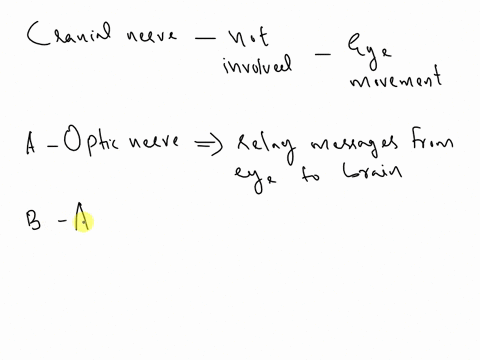 Cranial nerve – not involved – Eye movement
A – Optic nerve ⇒ Relay messages from eye to brain
B – A